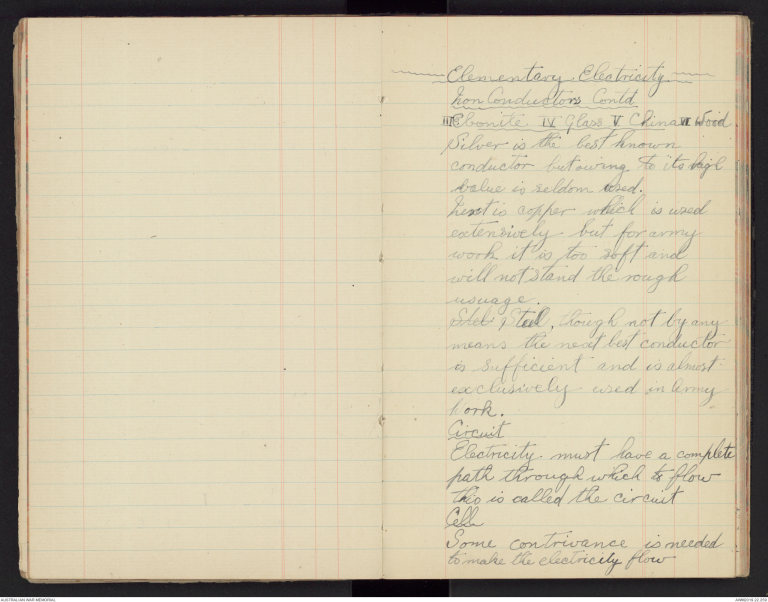 Elementary Electricity
Non Conductors Contd
III Ebonite IV Glass V China VI Wood
Silver is the best known
conductor but owing to its high
value is seldom used.
Next is copper which is used
extensively but for army
work it is too soft and
will not stand the rough
usuage.
Steel, though not by any
means the next best conductor
is sufficient and is almost
exclusively used in Army
Work.
Circuit
Electricity must have a complete
path through which to flow
this is called the circuit
Cells
Some contrivance is needed
to make the electricity flow
AUSTRALIAN WAR MEMORIAL